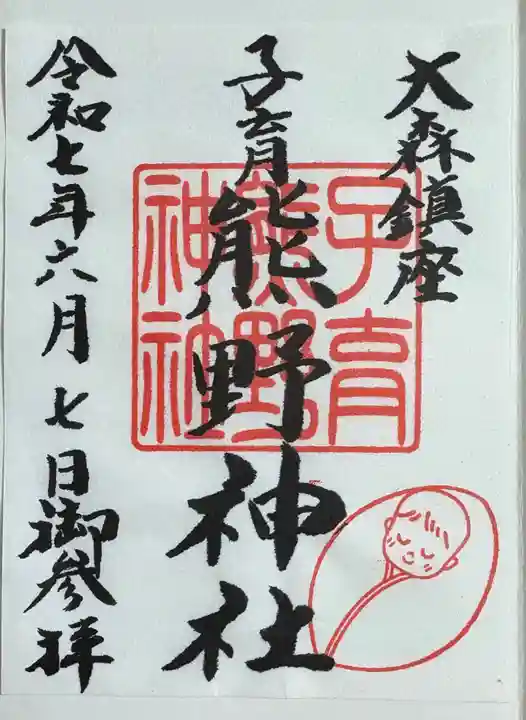 大森鎮座
子育熊野神社
令和七年六月七日御參拝
子育
熊野
神社